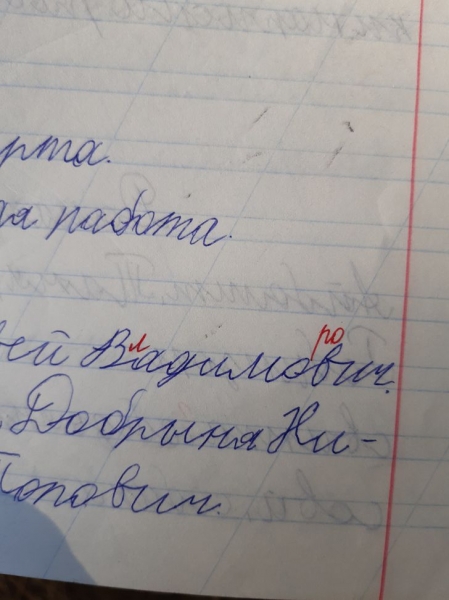 рта.
ая работа.
л ро
ей Вадимович.
Добрыня Ни-
Попович.